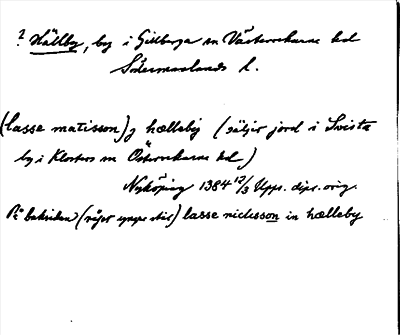 ? Hällby, by i Gillberga sn Västerrekarne hd
Södermanlands l.
(lasse matisson) j hælleby (säljer jord i Swista
by i Klosters sn Österrekarne hd)
Nyköping 1384 12/3 Upps. dipl. orig.
På baksidan (något yngre stil) lasse niclisson in hælleby